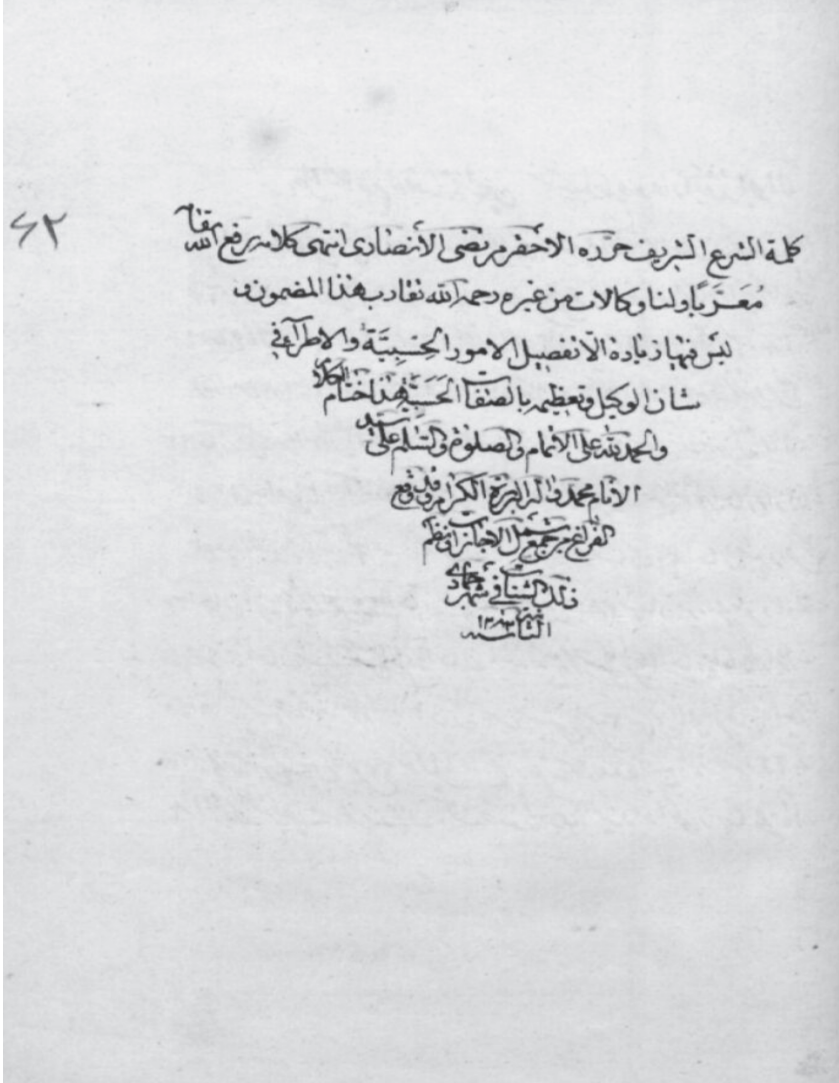 ٤٢
كلمة الشرع الشريف حرّره الاحقر مرتضى الأنصارى انتهى كلامه رفع الله مقامه
مُعَرَّبًا ولنا وكالات من غيره رحمه الله تقارب هذا المضمون و
ليس فيها زيادة الّا تفصيل الامور الحِسْبِيَّة والاطراء فى
شان الوكيل وتعظيمه بالصفات الحَسَنَة هذا ختام الكلام
والحمد لله على الاتمام والصلوة والسّلم على سيد
الانام محمد وآله البررة الكرام وقد وقع
الفراغ من جمع شمل الاجازات ونظم
ذلك الشتات فى شهر جمادى
الثانيه سنة